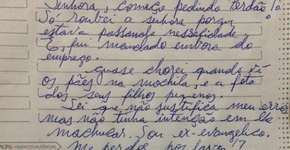 Senhora, começo pedindo perdão
Só roubei a senhora porque
estava passando nessesidade
E, fui mandado embora do
emprego.
quase chorei quando vi
os pães na mochila, e a foto
dos seus filhos pequenos.
Sei que não justifica meu erro
mas não tinha intenção em lhe
machucar. Sou ex-evangelico.
Me perdoe, por favor!?